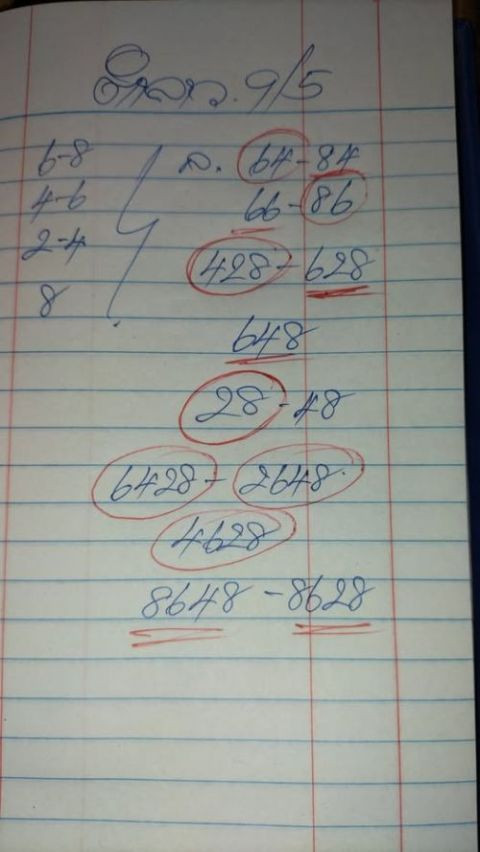 ลาว. 9/5
6-8
4-6
2-4
8
ล. 64-84
66-86
428-628
648
28-48
6428-2648
4628
8648-8628